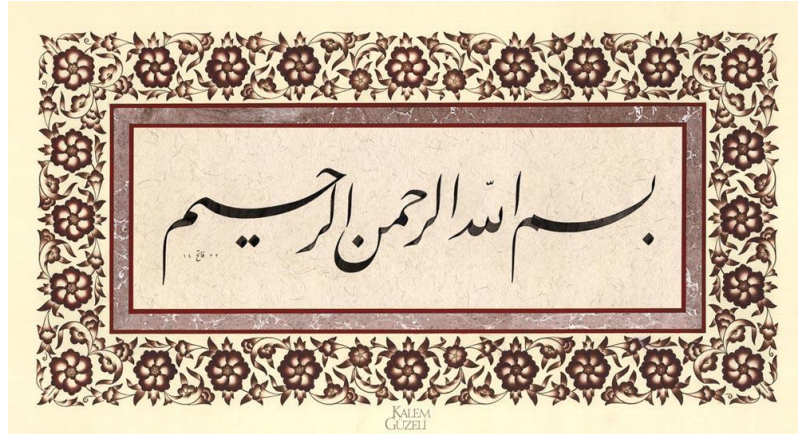 بسم الله الرحمن الرحيم
KALEM
GÜZELİ